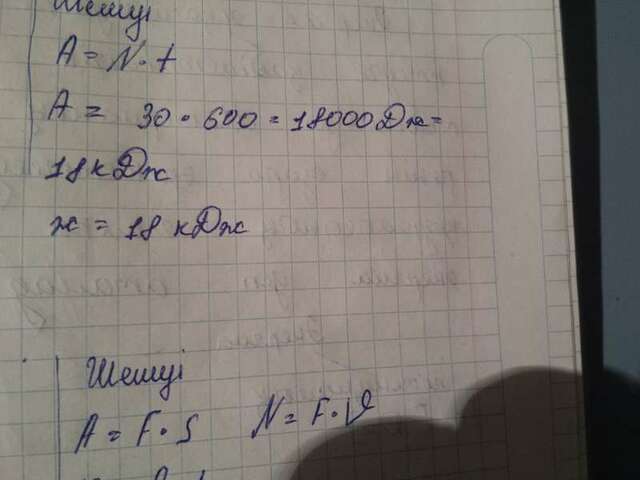 Шешуі
A = N · t
A = 30 · 600 = 18000 Дж =
18 кДж
ж = 18 кДж
Шешуі
A = F · S N = F · V